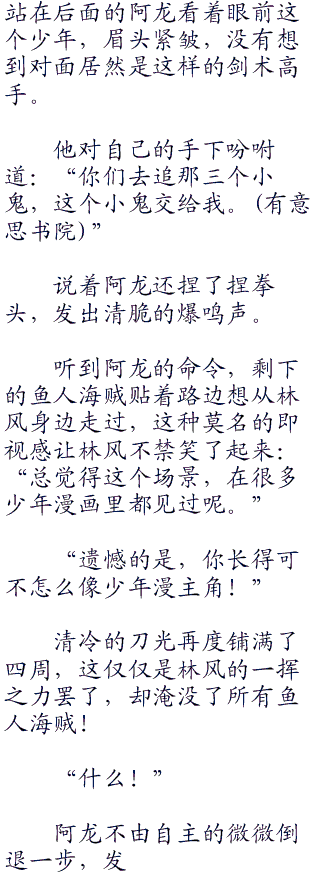 站在后面的阿龙看着眼前这
个少年，眉头紧皱，没有想
到对面居然是这样的剑术高
手。
他对自己的手下吩咐
道：“你们去追那三个小
鬼，这个小鬼交给我。(有意
思书院)”
说着阿龙还捏了捏拳
头，发出清脆的爆鸣声。
听到阿龙的命令，剩下
的鱼人海贼贴着路边想从林
风身边走过，这种莫名的即
视感让林风不禁笑了起来：
“总觉得这个场景，在很多
少年漫画里都见过呢。”
“遗憾的是，你长得可
不怎么像少年漫主角！”
清冷的刀光再度铺满了
四周，这仅仅是林风的一挥
之力罢了，却淹没了所有鱼
人海贼！
“什么！”
阿龙不由自主的微微倒
退一步，发